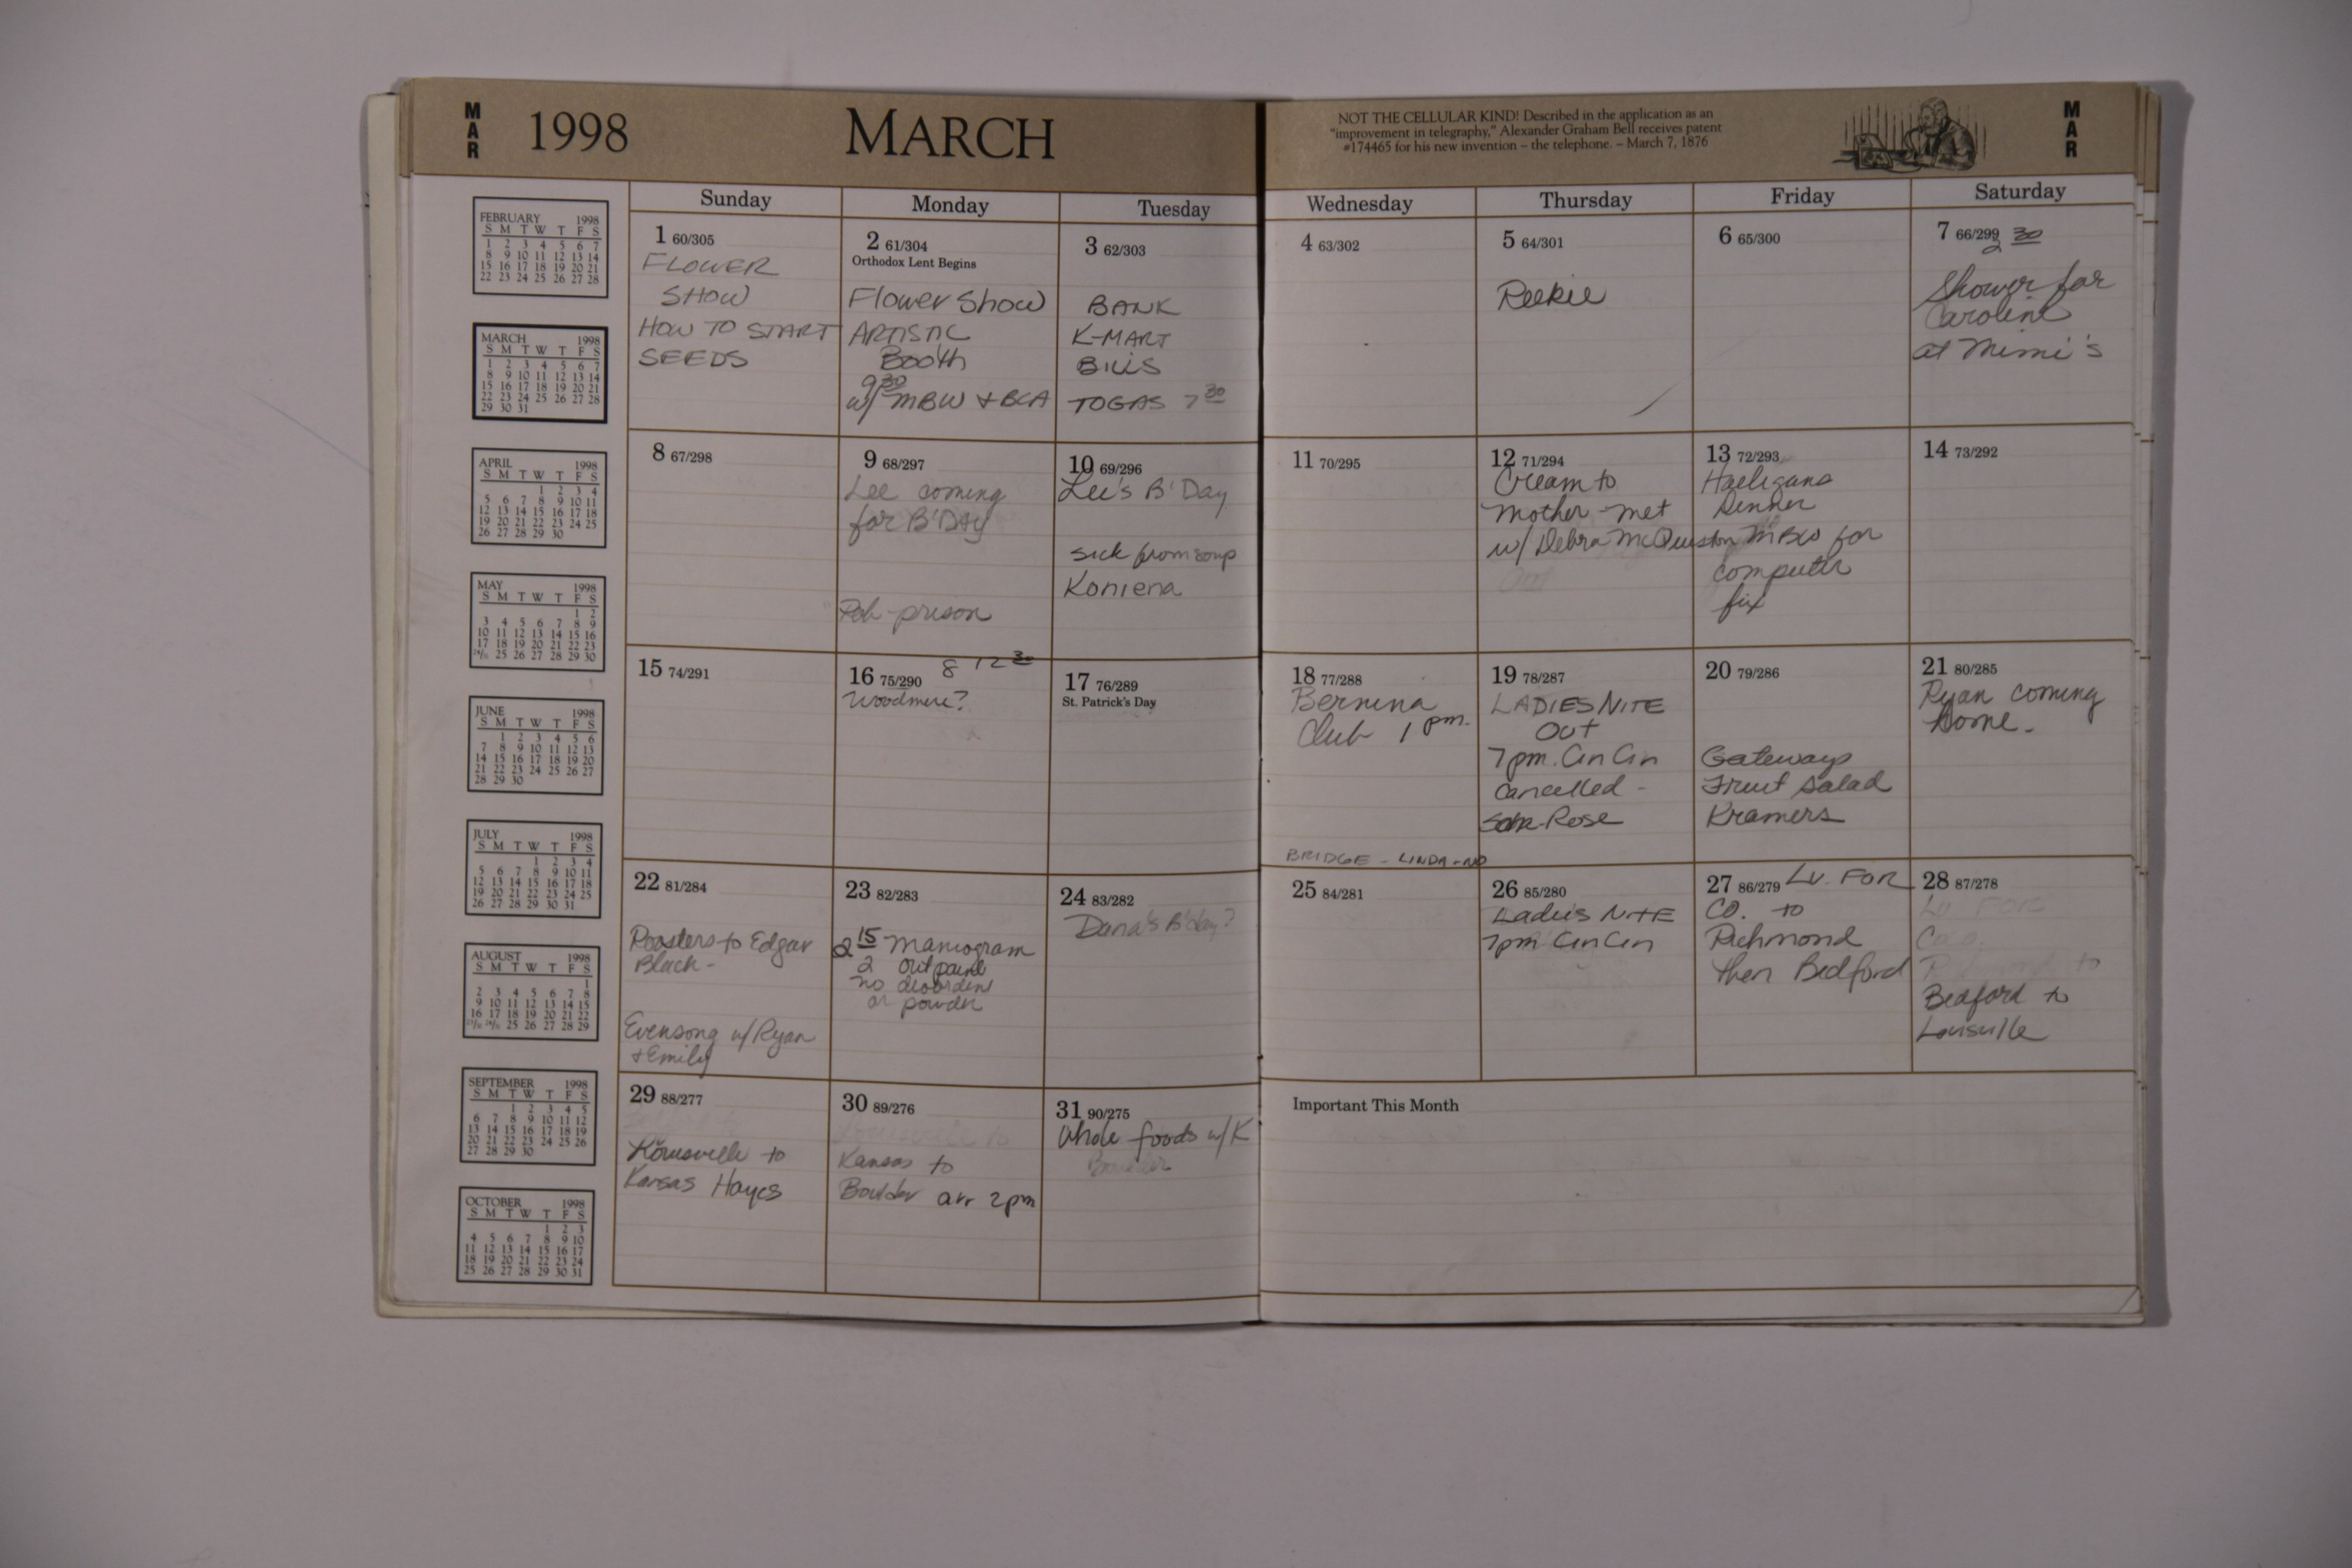 MAR
1998
MARCH
NOT THE CELLULAR KIND! Described in the application as an
"improvement in telegraphy," Alexander Graham Bell receives patent
#174465 for his new invention – the telephone. – March 7, 1876
MAR
Sunday
Monday
Tuesday
Wednesday
Thursday
Friday
Saturday
1 60/305
FLOWER
SHOW
HOW TO START
SEEDS
2 61/304
Orthodox Lent Begins
Flower Show
ARTISTIC
Booth
9 30
w/ MBW + BCA
3 62/303
BANK
K-MART
Bills
TOGAS 7 30
4 63/302
5 64/301
Reekie
6 65/300
7 66/299
2 30
Shower for
Caroline
at Mimi's
8 67/298
9 68/297
Lee coming
for B'DAY
prison
10 69/296
Lee's B'Day
sick from soup
Koniena
11 70/295
12 71/294
Cream to
Mother - met
w/ Debra McQuiston
13 72/293
Dinner
MBW for
computer
fix
14 73/292
15 74/291
16 75/290
8 12 30
Woodmere?
17 76/289
St. Patrick's Day
18 77/288
Bernina
Club 1 pm.
BRIDGE - LINDA - NO
19 78/287
LADIES NITE
Out
7pm. Cin Cin
Cancelled -
Rose
20 79/286
Gateways
Fruit Salad
Kramers
21 80/285
Ryan coming
Home -
22 81/284
Roosters to Edgar
Black -
Evensong w/ Ryan
+ Emily
23 82/283
2 15 mamogram
2
no
or powder
24 83/282
Dana's B'day?
25 84/281
26 85/280
Ladies NITE
7pm Cin Cin
27 86/279 Lv. FOR
CO. to
Richmond
then Bedford
28 87/278
Lv FOR
Co.
Richmond to
Bedford to
Louisville
29 88/277
Louisville to
Kansas Hayes
30 89/276
Louisville to
Kansas to
Boulder arr 2pm
31 90/275
Whole foods w/ K
Boulder
Important This Month
FEBRUARY 1998
S M T W T F S
1 2 3 4 5 6 7
8 9 10 11 12 13 14
15 16 17 18 19 20 21
22 23 24 25 26 27 28
MARCH 1998
S M T W T F S
1 2 3 4 5 6 7
8 9 10 11 12 13 14
15 16 17 18 19 20 21
22 23 24 25 26 27 28
29 30 31
APRIL 1998
S M T W T F S
1 2 3 4
5 6 7 8 9 10 11
12 13 14 15 16 17 18
19 20 21 22 23 24 25
26 27 28 29 30
MAY 1998
S M T W T F S
1 2
3 4 5 6 7 8 9
10 11 12 13 14 15 16
17 18 19 20 21 22 23
24/31 25 26 27 28 29 30
JUNE 1998
S M T W T F S
1 2 3 4 5 6
7 8 9 10 11 12 13
14 15 16 17 18 19 20
21 22 23 24 25 26 27
28 29 30
JULY 1998
S M T W T F S
1 2 3 4
5 6 7 8 9 10 11
12 13 14 15 16 17 18
19 20 21 22 23 24 25
26 27 28 29 30 31
AUGUST 1998
S M T W T F S
1
2 3 4 5 6 7 8
9 10 11 12 13 14 15
16 17 18 19 20 21 22
23/30 24/31 25 26 27 28 29
SEPTEMBER 1998
S M T W T F S
1 2 3 4 5
6 7 8 9 10 11 12
13 14 15 16 17 18 19
20 21 22 23 24 25 26
27 28 29 30
OCTOBER 1998
S M T W T F S
1 2 3
4 5 6 7 8 9 10
11 12 13 14 15 16 17
18 19 20 21 22 23 24
25 26 27 28 29 30 31